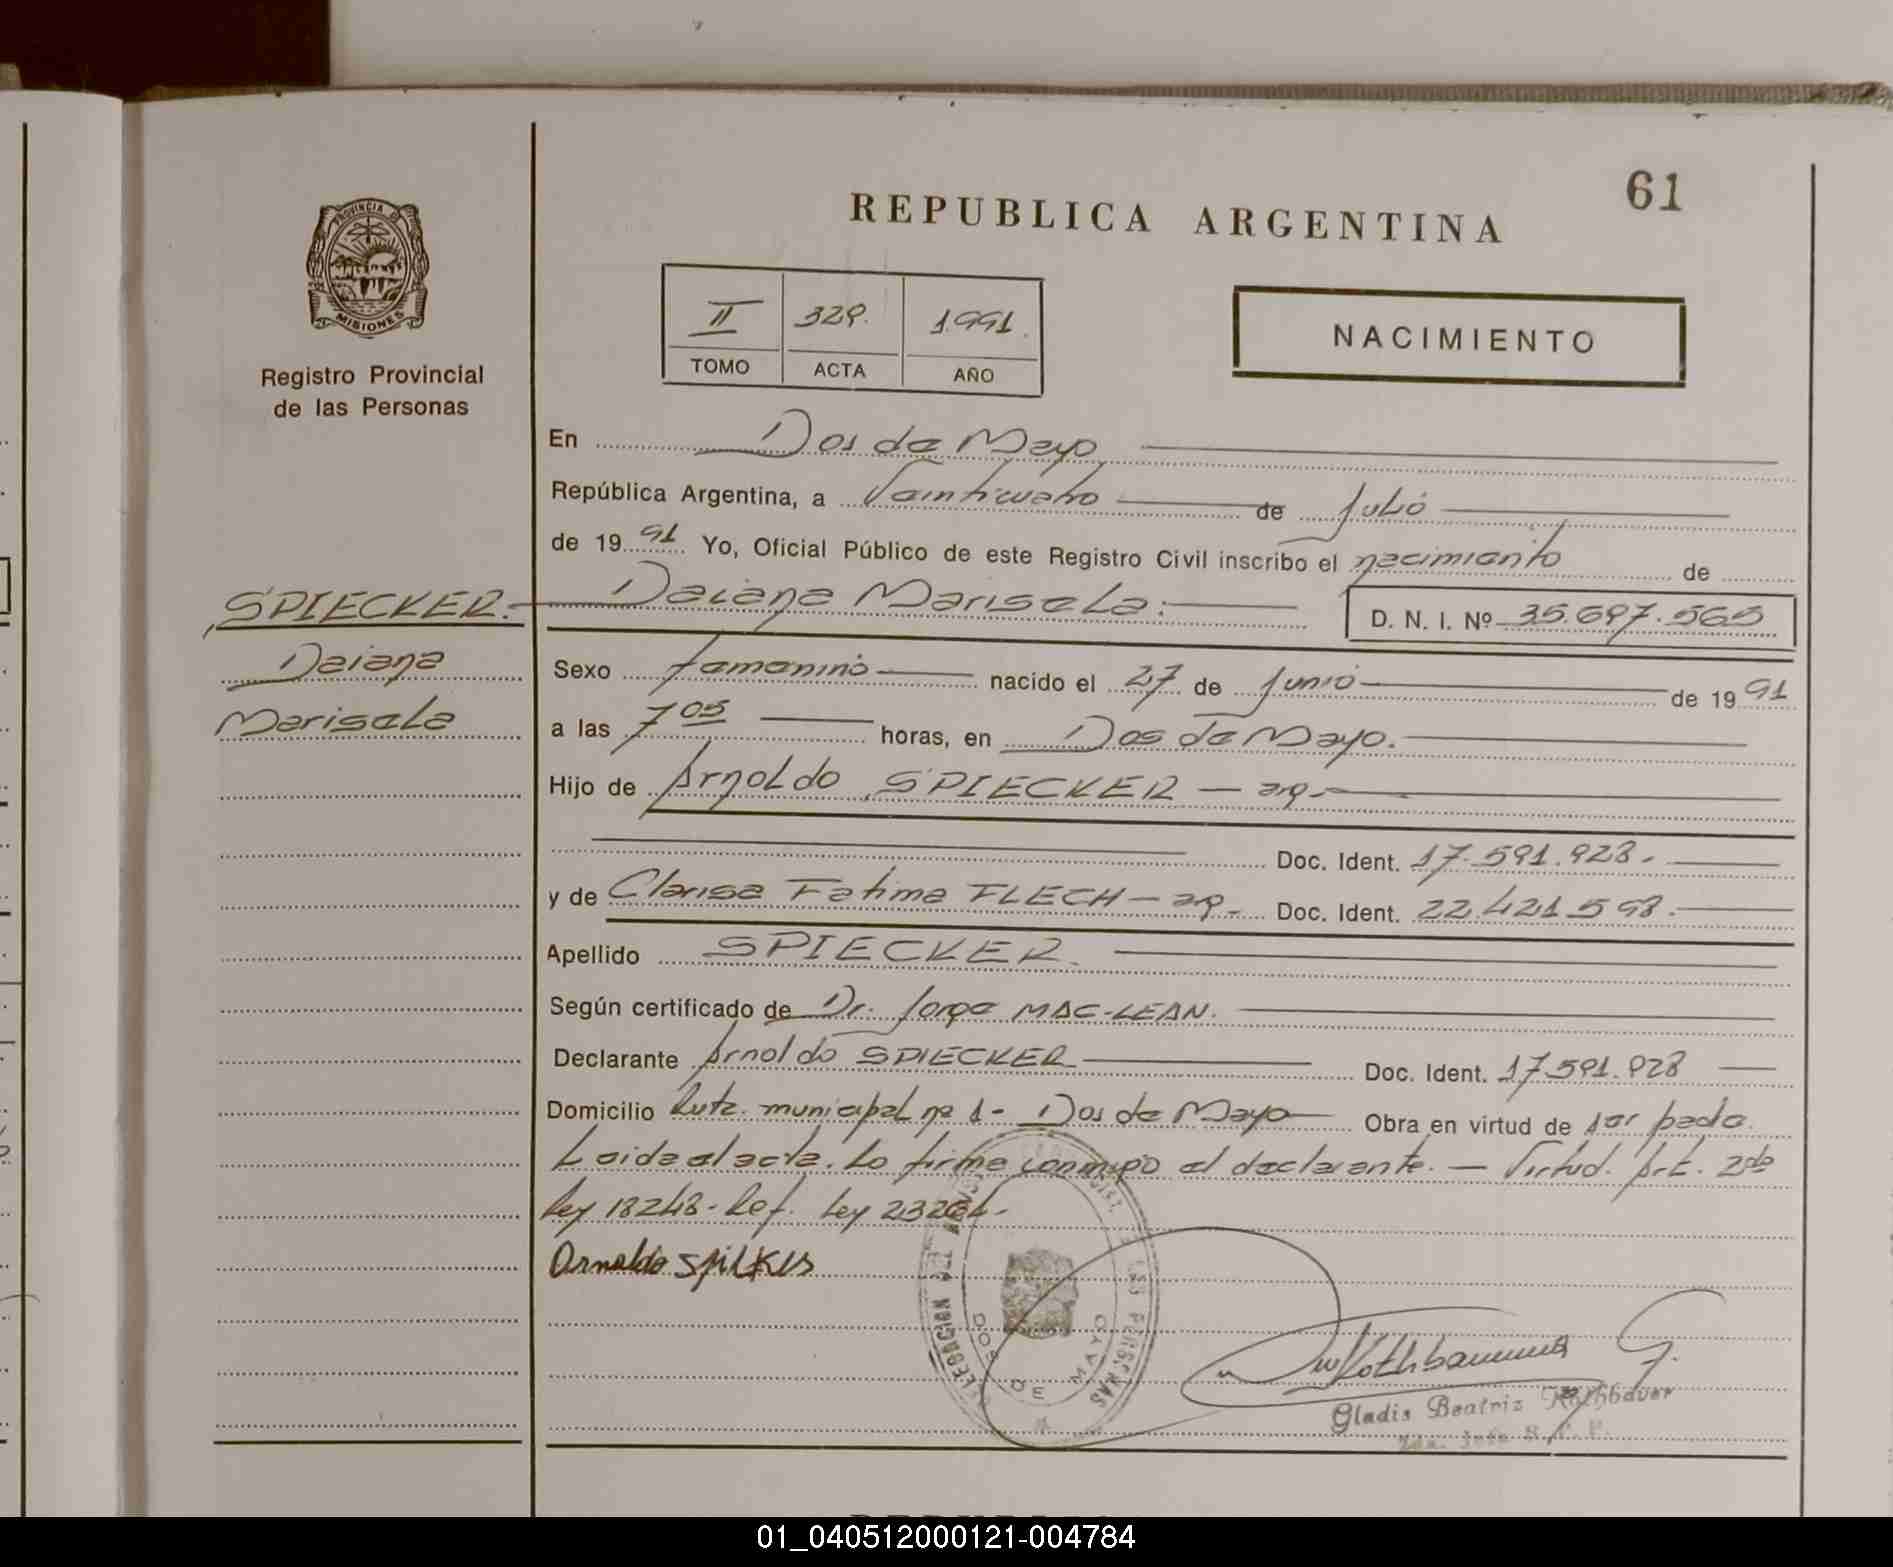 61
REPUBLICA ARGENTINA
PROVINCIA DE
MISIONES
Registro Provincial
de las Personas
II 329. 1.991.
TOMO ACTA AÑO
NACIMIENTO
En Dos de Mayo
República Argentina, a Veinticuatro de Julio
de 19 91 Yo, Oficial Público de este Registro Civil inscribo el nacimiento de
SPIECKER.- Daiana Marisela.-
D. N. I. Nº 35.697.565
Daiana
Marisela
Sexo Femenino nacido el 27 de Junio de 19 91
a las 7 05 horas, en Dos de Mayo.
Hijo de Arnoldo SPIECKER - ar.-
Doc. Ident. 17.591.928.
y de Clarisa Fatima FLECH - ar.- Doc. Ident. 22.421.598.
Apellido SPIECKER.
Según certificado de Dr. Jorge MAC-LEAN.
Declarante Arnoldo SPIECKER Doc. Ident. 17.591.928
Domicilio Ruta municipal nº 1- Dos de Mayo Obra en virtud de ser padre.
Leida el acta. Lo firma conmigo el declarante. - Virtud. Art. 2do
Ley 18248- Ref. Ley 23264-
Arnoldo
DELEGACION DEL REGISTRO DE LAS PERSONAS
DOS DE MAYO
Rothbauer G.
Gladis Beatriz Rothbauer
2da. Jefe R. P. P.
01_040512000121-004784